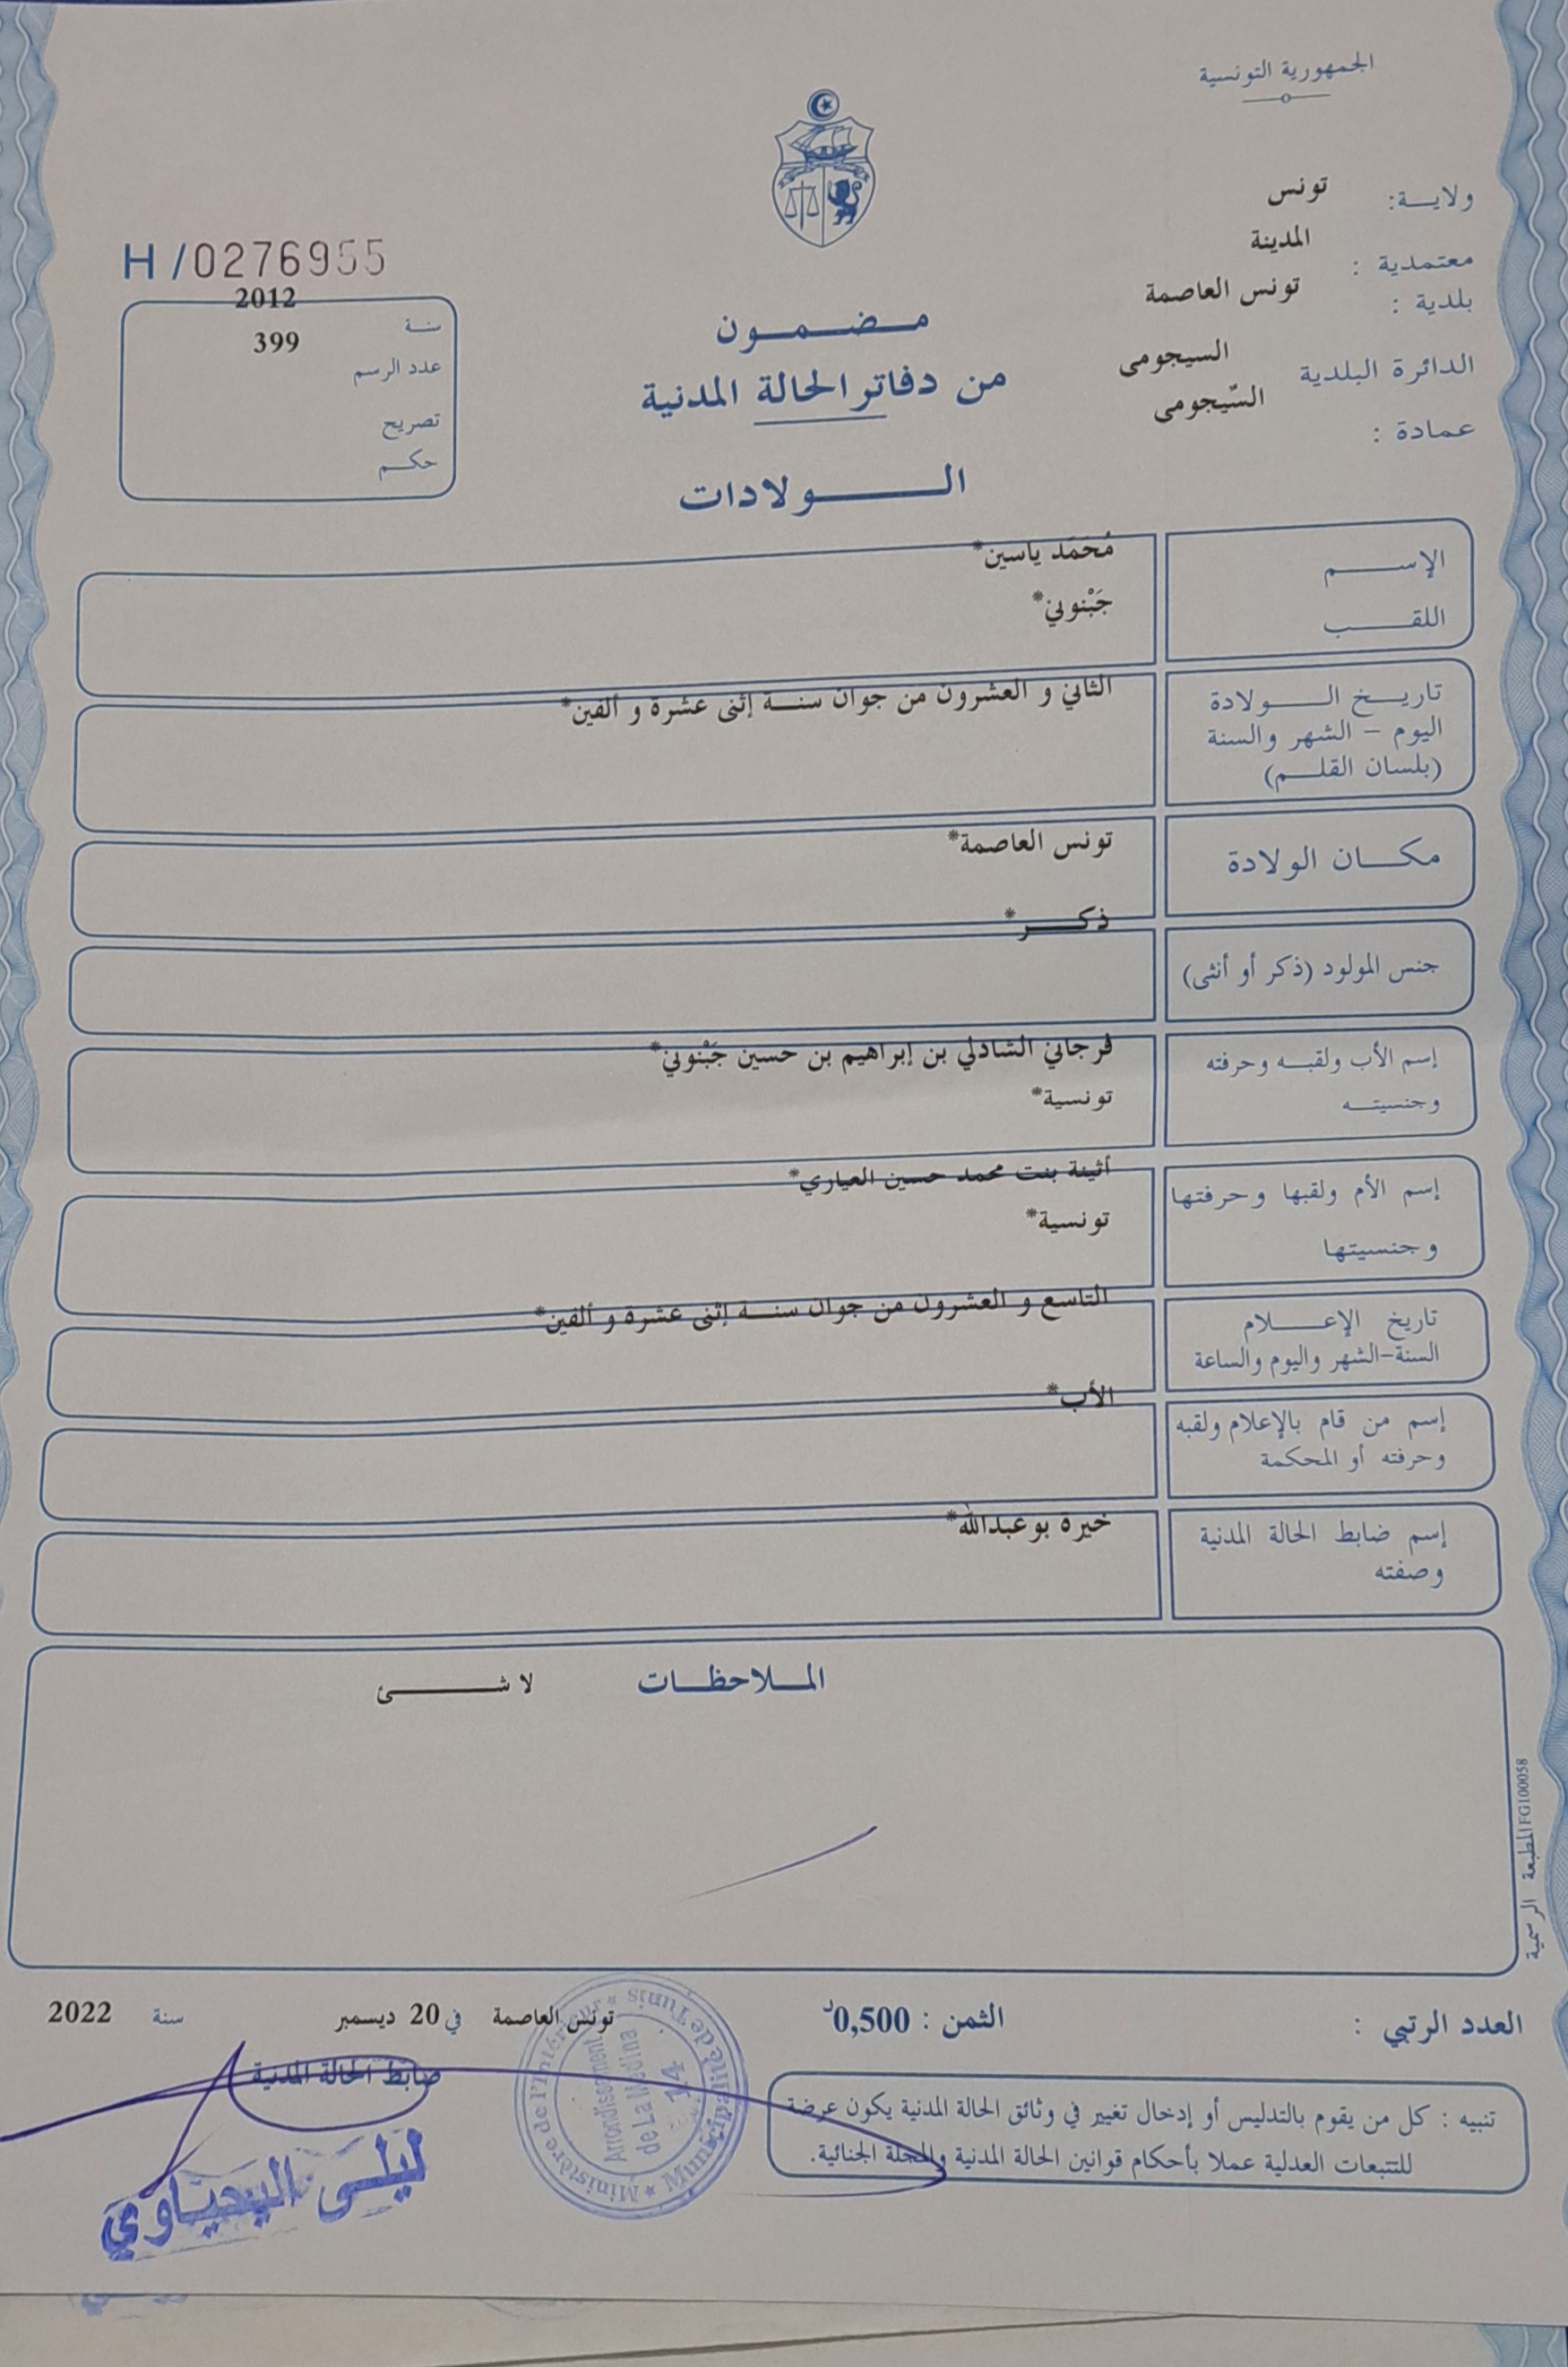 الجمهورية التونسية
ولايـــة: تونس
معتمدية : المدينة
بلدية : تونس العاصمة
الدائرة البلدية السيجومى
عمادة : السّيجومى
H/0276955
سنة 2012
عدد الرسم 399
تصريح
حكم
مضمون
من دفاتر الحالة المدنية
الولادات
الإسم مُحَمَد ياسين*
اللقب جَبْنوني*
تاريخ الولادة الثاني و العشرون من جوان سنة إثنى عشرة و ألفين*
اليوم - الشهر والسنة
(بلسان القلم)
مكان الولادة تونس العاصمة*
جنس المولود (ذكر أو أنثى) ذكر*
إسم الأب ولقبه وحرفته فرجاني الشاذلي بن إبراهيم بن حسين جَبْنوني*
وجنسيته تونسية*
إسم الأم ولقبها وحرفتها بنت محمد حسين العياري*
وجنسيتها تونسية*
تاريخ الإعلام التاسع و العشرون من جوان سنة إثنى عشرة و ألفين*
السنة-الشهر واليوم والساعة
إسم من قام بالإعلام ولقبه الأب*
وحرفته أو المحكمة
إسم ضابط الحالة المدنية خيرة بوعبدالله*
وصفته
الملاحظات لا شئ
المطبعة الرسمية FG100058
العدد الرتبي :
الثمن : 0,500د
تونس العاصمة في 20 ديسمبر سنة 2022
ضابط الحالة المدنية
ليلى اليحياوي
Ministère de l'Intérieur * Municipalité de Tunis *
Arrondissement
de La Médina
14
تنبيه : كل من يقوم بالتدليس أو إدخال تغيير في وثائق الحالة المدنية يكون عرضة
للتتبعات العدلية عملا بأحكام قوانين الحالة المدنية والمجلة الجنائية.